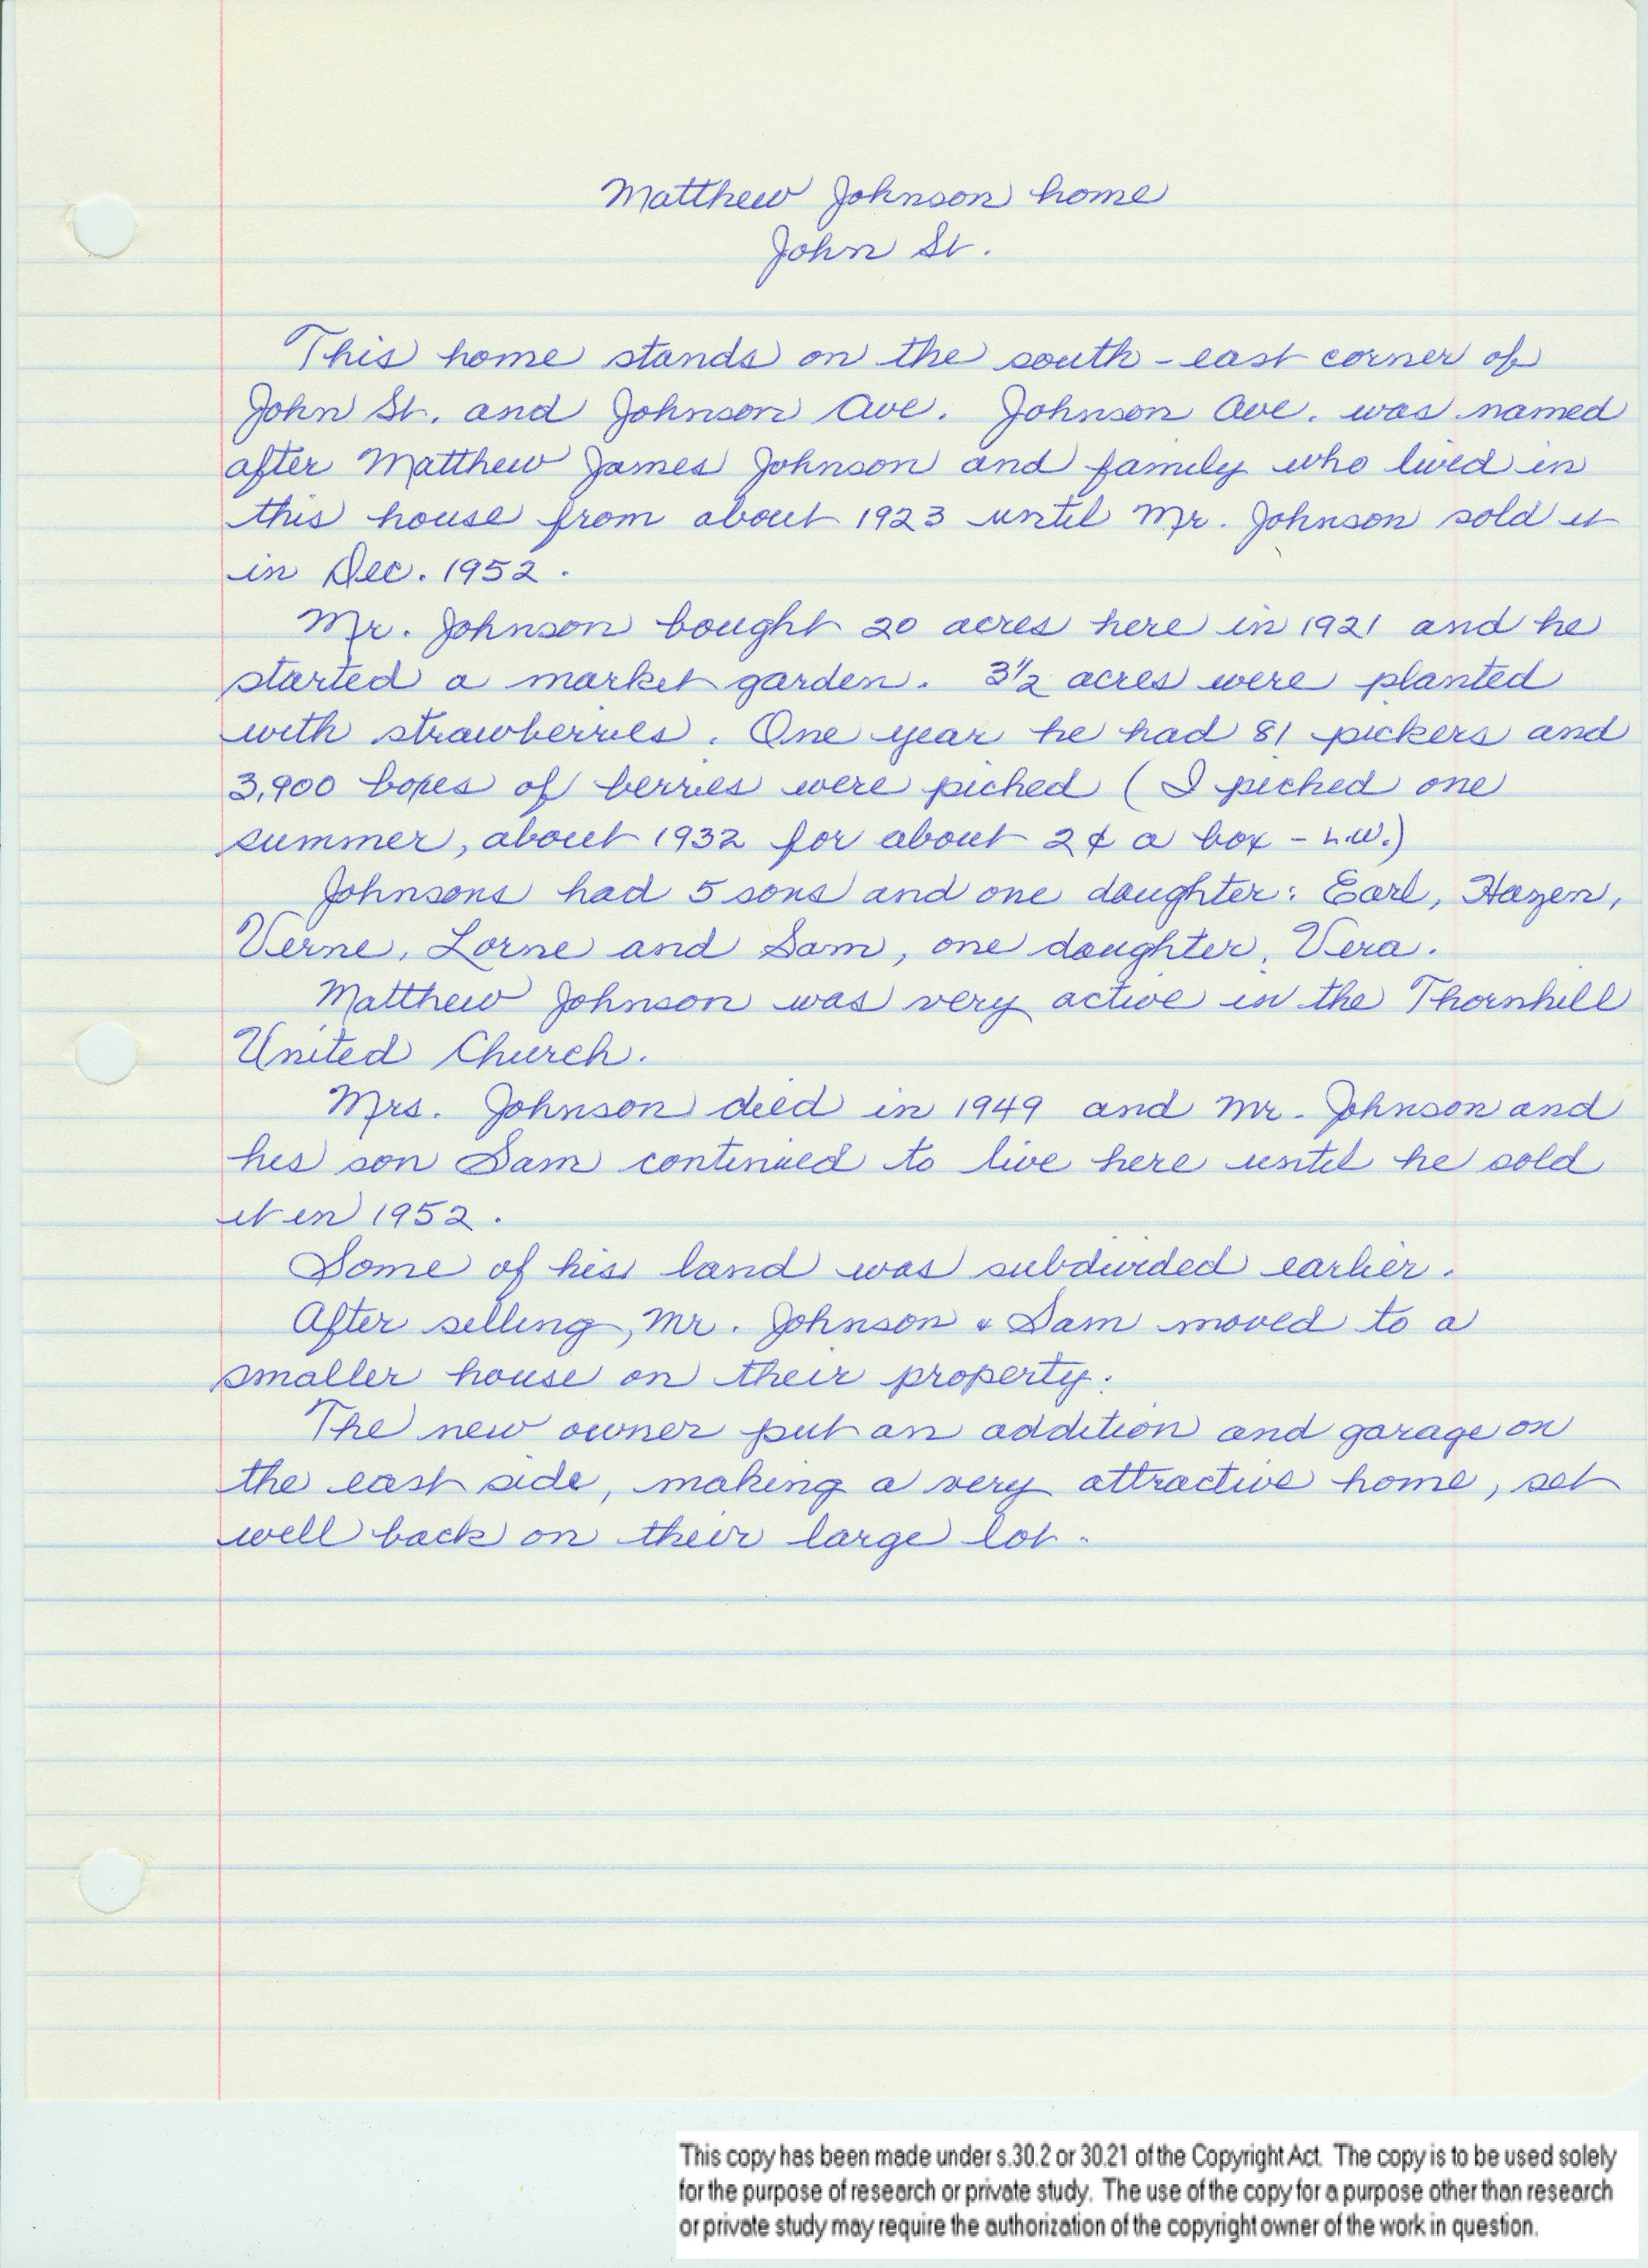 Matthew Johnson home
John St.
This home stands on the south-east corner of
John St. and Johnson Ave. Johnson Ave. was named
after Matthew James Johnson and family who lived in
this house from about 1923 until Mr. Johnson sold it
in Dec. 1952.
Mr. Johnson bought 20 acres here in 1921 and he
started a market garden. 3½ acres were planted
with strawberries. One year he had 81 pickers and
3,900 boxes of berries were picked (I picked one
summer, about 1932 for about 2¢ a box - L.W.)
Johnsons had 5 sons and one daughter: Earl, Hazen,
Verne, Lorne and Sam, one daughter, Vera.
Matthew Johnson was very active in the Thornhill
United Church.
Mrs. Johnson died in 1949 and Mr. Johnson and
his son Sam continued to live here until he sold
it in 1952.
Some of his land was subdivided earlier.
After selling, Mr. Johnson & Sam moved to a
smaller house on their property.
The new owner put an addition and garage on
the east side, making a very attractive home, set
well back on their large lot.
This copy has been made under s.30.2 or 30.21 of the Copyright Act. The copy is to be used solely
for the purpose of research or private study. The use of the copy for a purpose other than research
or private study may require the authorization of the copyright owner of the work in question.